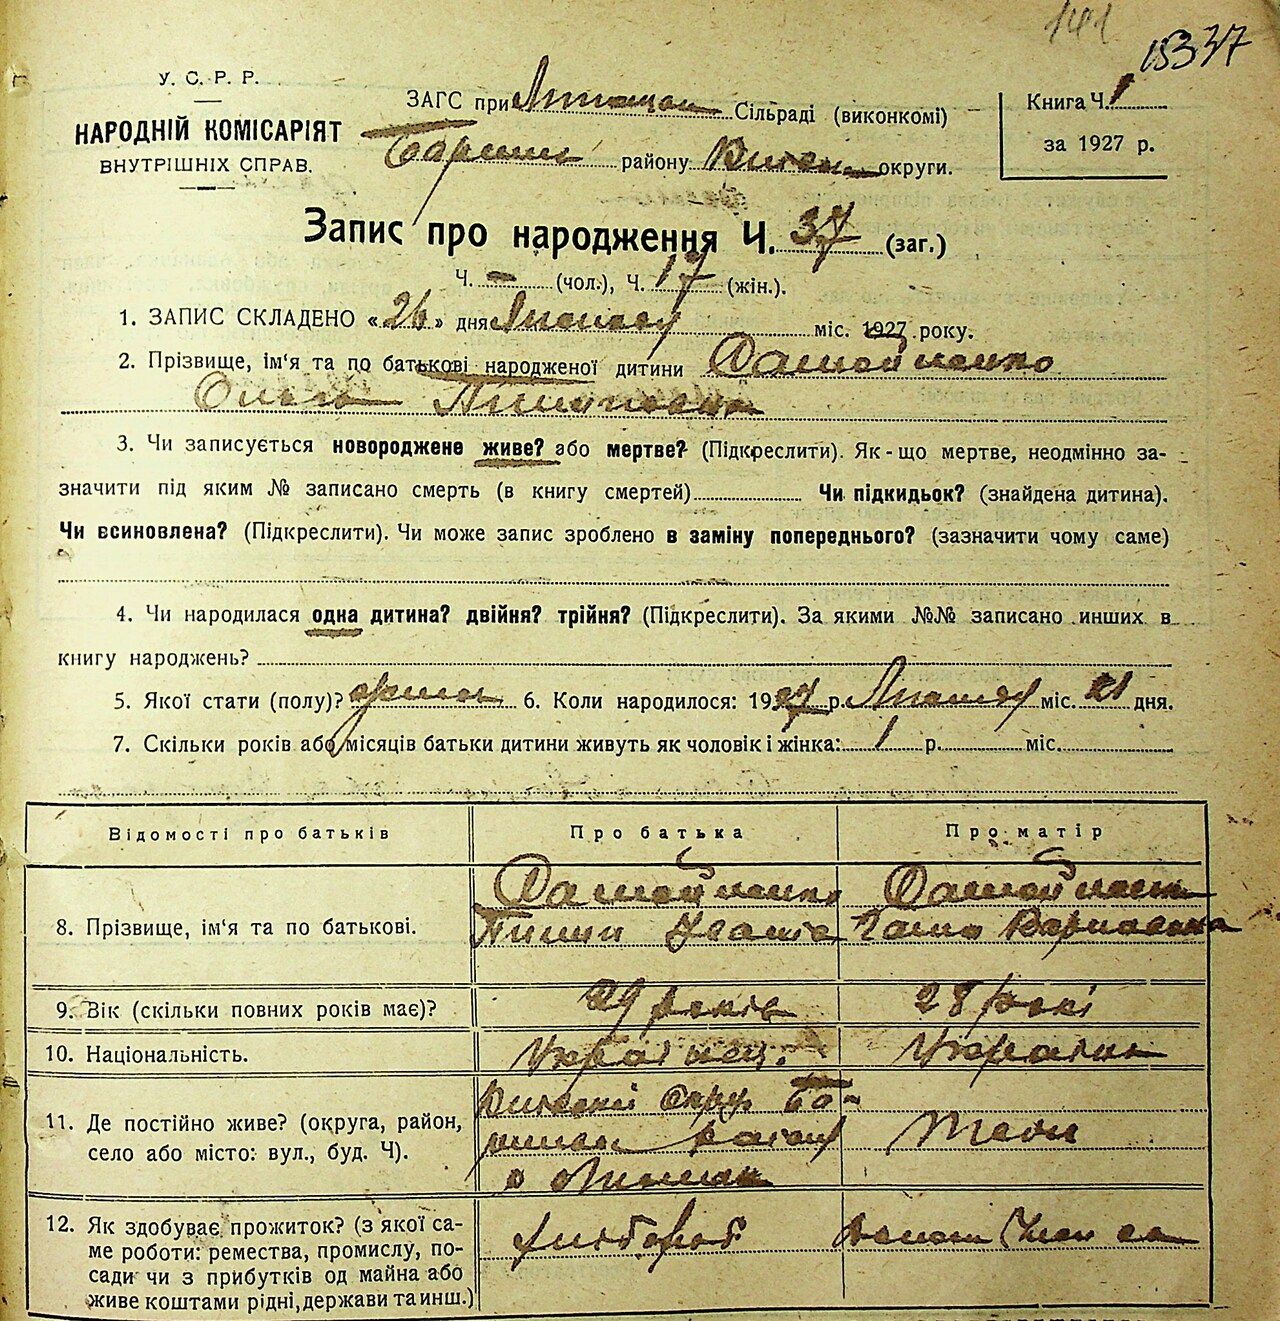 141
15337
У. С. Р. Р.
НАРОДНІЙ КОМІСАРІЯТ
ВНУТРІШНІХ СПРАВ.
ЗАГС при Сільраді (виконкомі)
району округи.
Книга Ч. 1
за 1927 р.
Запис про народження Ч. 37 (заг.)
Ч. – (чол.), Ч. 17 (жін.).
1. ЗАПИС СКЛАДЕНО «26» дня міс. 1927 року.
2. Прізвище, ім'я та по батькові народженої дитини
Ольга Пилиповна
3. Чи записується новороджене живе? або мертве? (Підкреслити). Як-що мертве, неодмінно за-
значити під яким № записано смерть (в книгу смертей) Чи підкидьок? (знайдена дитина).
Чи всиновлена? (Підкреслити). Чи може запис зроблено в заміну попереднього? (зазначити чому саме)
4. Чи народилася одна дитина? двійня? трійня? (Підкреслити). За якими №№ записано инших в
книгу народжень?
5. Якої стати (полу)? 6. Коли народилося: 1927 р. міс. 21 дня.
7. Скільки років або місяців батьки дитини живуть як чоловік і жінка: 1 р. міс.
Відомості про батьків Про батька Про матір
8. Прізвище, ім'я та по батькові.
Пилип Іванів Ганна
9. Вік (скільки повних років має)? 29 років 28 рокі
10. Національність. Українец. Українк
11. Де постійно живе? (округа, район,
село або місто: вул., буд. Ч).
12. Як здобуває прожиток? (з якої са-
ме роботи: ремества, промислу, по-
сади чи з прибутків од майна або
живе коштами рідні, держави та инш.)
хлібороб